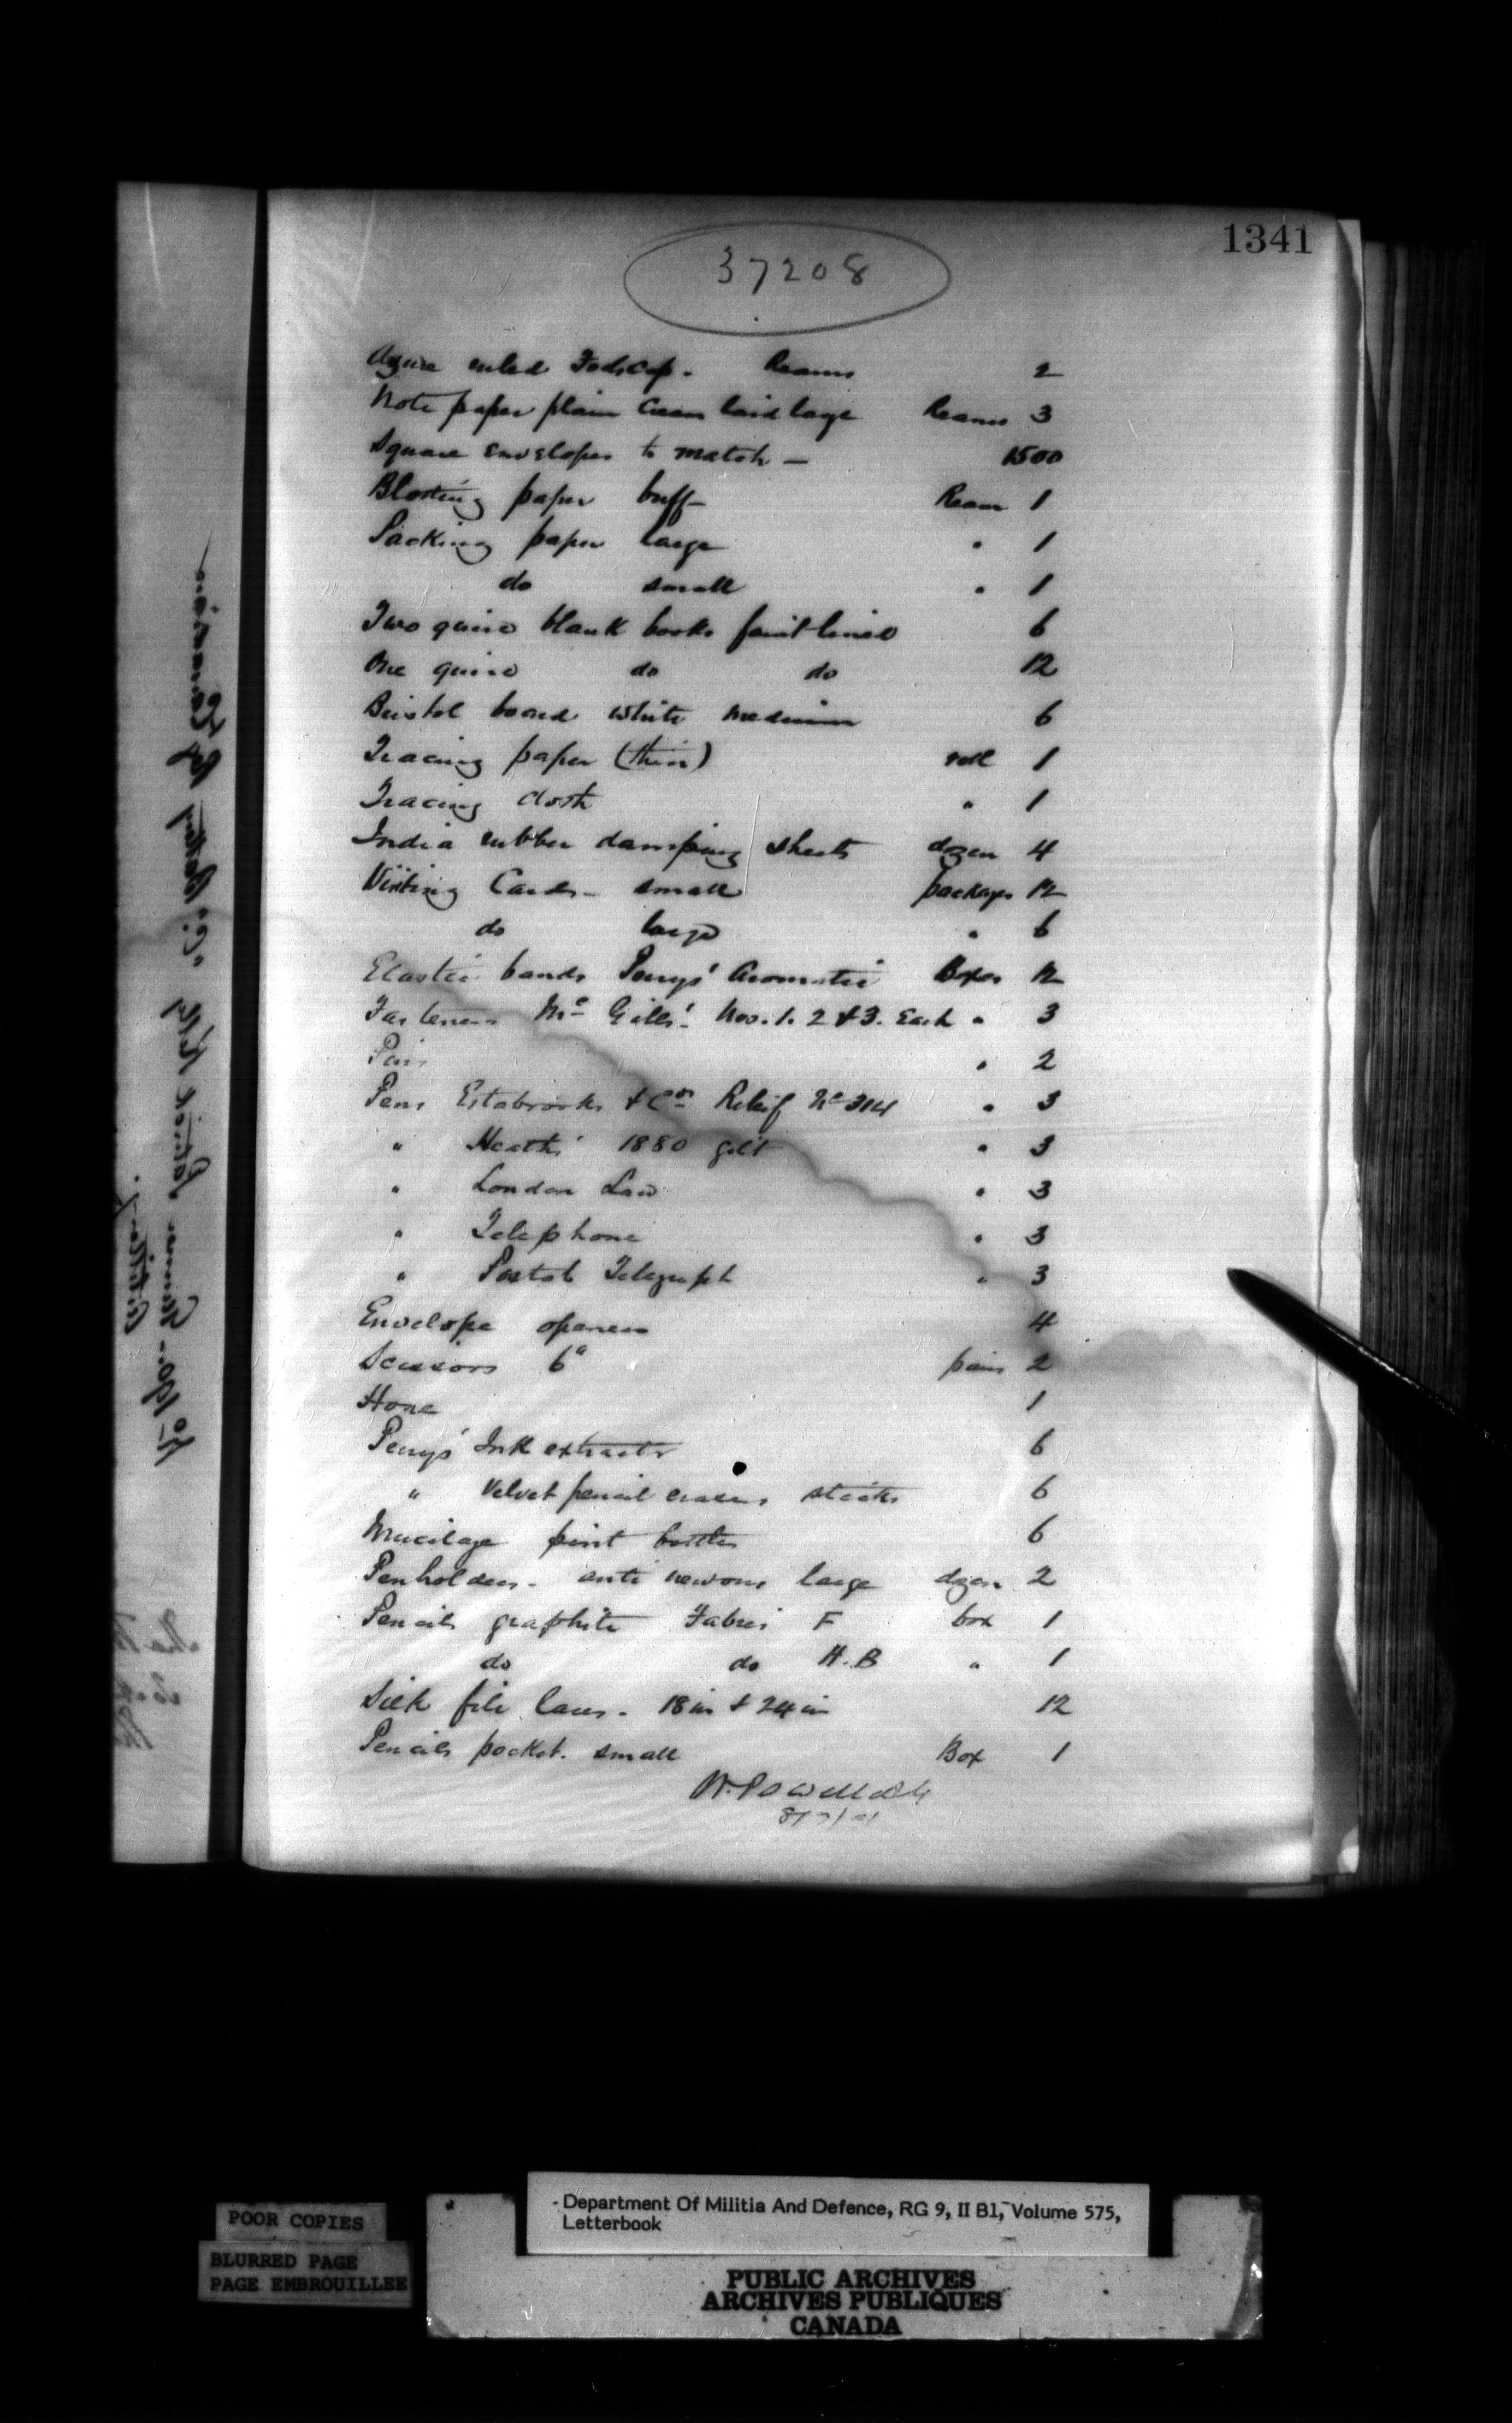 1341
37208
Azure ruled Foolscap. Reams 2
Note paper plain Cream laid large Reams 3
Square Envelopes to match — 1500
Blotting paper buff Ream 1
Packing paper large " 1
do small " 1
Two quire blank books faint lined 6
One quire do do 12
Bristol board white medium 6
Tracing paper (thin) roll 1
Tracing cloth " 1
India rubber damping sheets dozen 4
Visiting Cards - small packages 12
do large " 6
Elastic bands Perrys' Aromatic Boxes 12
Fasteners Mc Gills'. Nos. 1. 2 & 3. Each " 3
" 2
Pens Estabrooks & Cos Relief No 314 " 3
" Heaths' 1880 gilt " 3
" London Law " 3
" Telephone " 3
" Postal Telegraph " 3
Envelope openers 4
Scissors 6" pairs 2
Hone 1
Perrys' Ink extracts 6
" Velvet pencil erasers sticks 6
Mucilage pint bottles 6
Penholders - anti nervous large dozen 2
Pencils graphite Fabers F box 1
do do H.B " 1
Silk file laces - 18 in & 24 in 12
Pencils pocket. small Box 1
W. Powell
POOR COPIES
BLURRED PAGE
PAGE EMBROUILLEE
Department Of Militia And Defence, RG 9, II B1, Volume 575,
Letterbook
PUBLIC ARCHIVES
ARCHIVES PUBLIQUES
CANADA